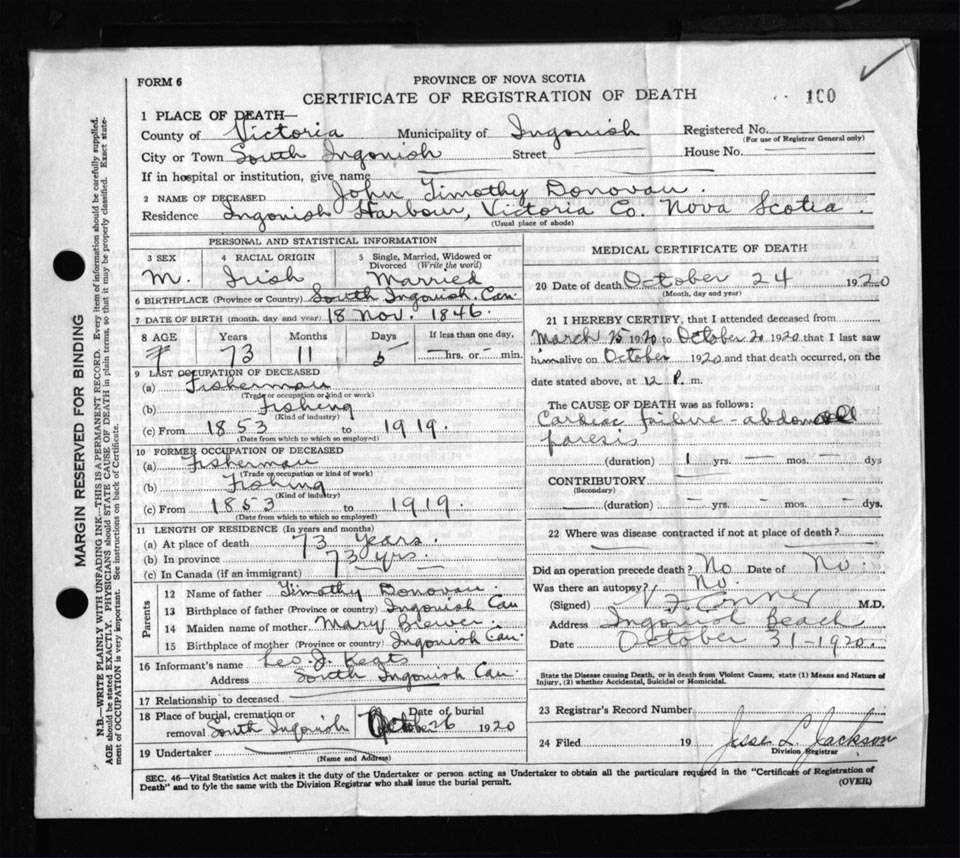 FORM 6
PROVINCE OF NOVA SCOTIA
CERTIFICATE OF REGISTRATION OF DEATH
100
1 PLACE OF DEATH—
County of Victoria Municipality of Ingonish Registered No.
(For use of Registrar General only)
City or Town South Ingonish Street House No.
If in hospital or institution, give name
2 NAME OF DECEASED John Timothy Donovan.
Residence Ingonish Harbour, Victoria Co. Nova Scotia.
(Usual place of abode)
PERSONAL AND STATISTICAL INFORMATION
3 SEX 4 RACIAL ORIGIN 5 Single, Married, Widowed or Divorced (Write the word)
M. Irish Married
6 BIRTHPLACE (Province or Country) South Ingonish. Can
7 DATE OF BIRTH (month, day and year) 18 Nov. 1846.
8 AGE Years Months Days If less than one day,
73 11 5 — hrs. or — min.
9 LAST OCCUPATION OF DECEASED
(a) Fisherman
(Trade or occupation or kind or work)
(b) Fishing
(Kind of industry)
(c) From 1853 to 1919.
(Date from which to which so employed)
10 FORMER OCCUPATION OF DECEASED
(a) Fisherman
(Trade or occupation or kind of work)
(b) Fishing
(Kind of industry)
(c) From 1853 to 1919.
(Date from which to which so employed)
11 LENGTH OF RESIDENCE (In years and months)
(a) At place of death 73 Years.
(b) In province 73 yrs.
(c) In Canada (if an immigrant)
Parents
12 Name of father Timothy Donovan.
13 Birthplace of father (Province or country) Ingonish Can
14 Maiden name of mother Mary
15 Birthplace of mother (Province or country) Ingonish Can.
16 Informant's name Leo. J.
Address South Ingonish Can.
17 Relationship to deceased
18 Place of burial, cremation or removal South Ingonish Date of burial October 26 1920
19 Undertaker
(Name and Address)
MEDICAL CERTIFICATE OF DEATH
20 Date of death October 24 1920
(Month, day and year)
21 I HEREBY CERTIFY, that I attended deceased from
March 15 1920 to October 20 1920 that I last saw
him alive on October 1920 and that death occurred, on the
date stated above, at 12 P. m.
The CAUSE OF DEATH was as follows:
Cardiac failure - abdominal
paresis
(duration) 1 yrs. — mos. — dys
CONTRIBUTORY
(Secondary)
(duration) — yrs. — mos. — dys.
22 Where was disease contracted if not at place of death?
Did an operation precede death? No Date of No.
Was there an autopsy? No.
(Signed) M.D.
Address Ingonish Beach
Date October 31-1920.
State the Disease causing Death, or in death from Violent Causes, state (1) Means and Nature of
Injury, (2) whether Accidental, Suicidal or Homicidal.
23 Registrar's Record Number
24 Filed 19 Jesse L. Jackson
Division Registrar
SEC. 46—Vital Statistics Act makes it the duty of the Undertaker or person acting as Undertaker to obtain all the particulars required in the "Certificate of Registration of
Death" and to fyle the same with the Division Registrar who shall issue the burial permit.
(OVER)
MARGIN RESERVED FOR BINDING
N.B.—WRITE PLAINLY WITH UNFADING INK—THIS IS A PERMANENT RECORD. Every item of information should be carefully supplied.
AGE should be stated EXACTLY. PHYSICIANS should STATE CAUSE OF DEATH in plain terms, so that it may be properly classified. Exact state-
ment of OCCUPATION is very important. See instructions on back of Certificate.